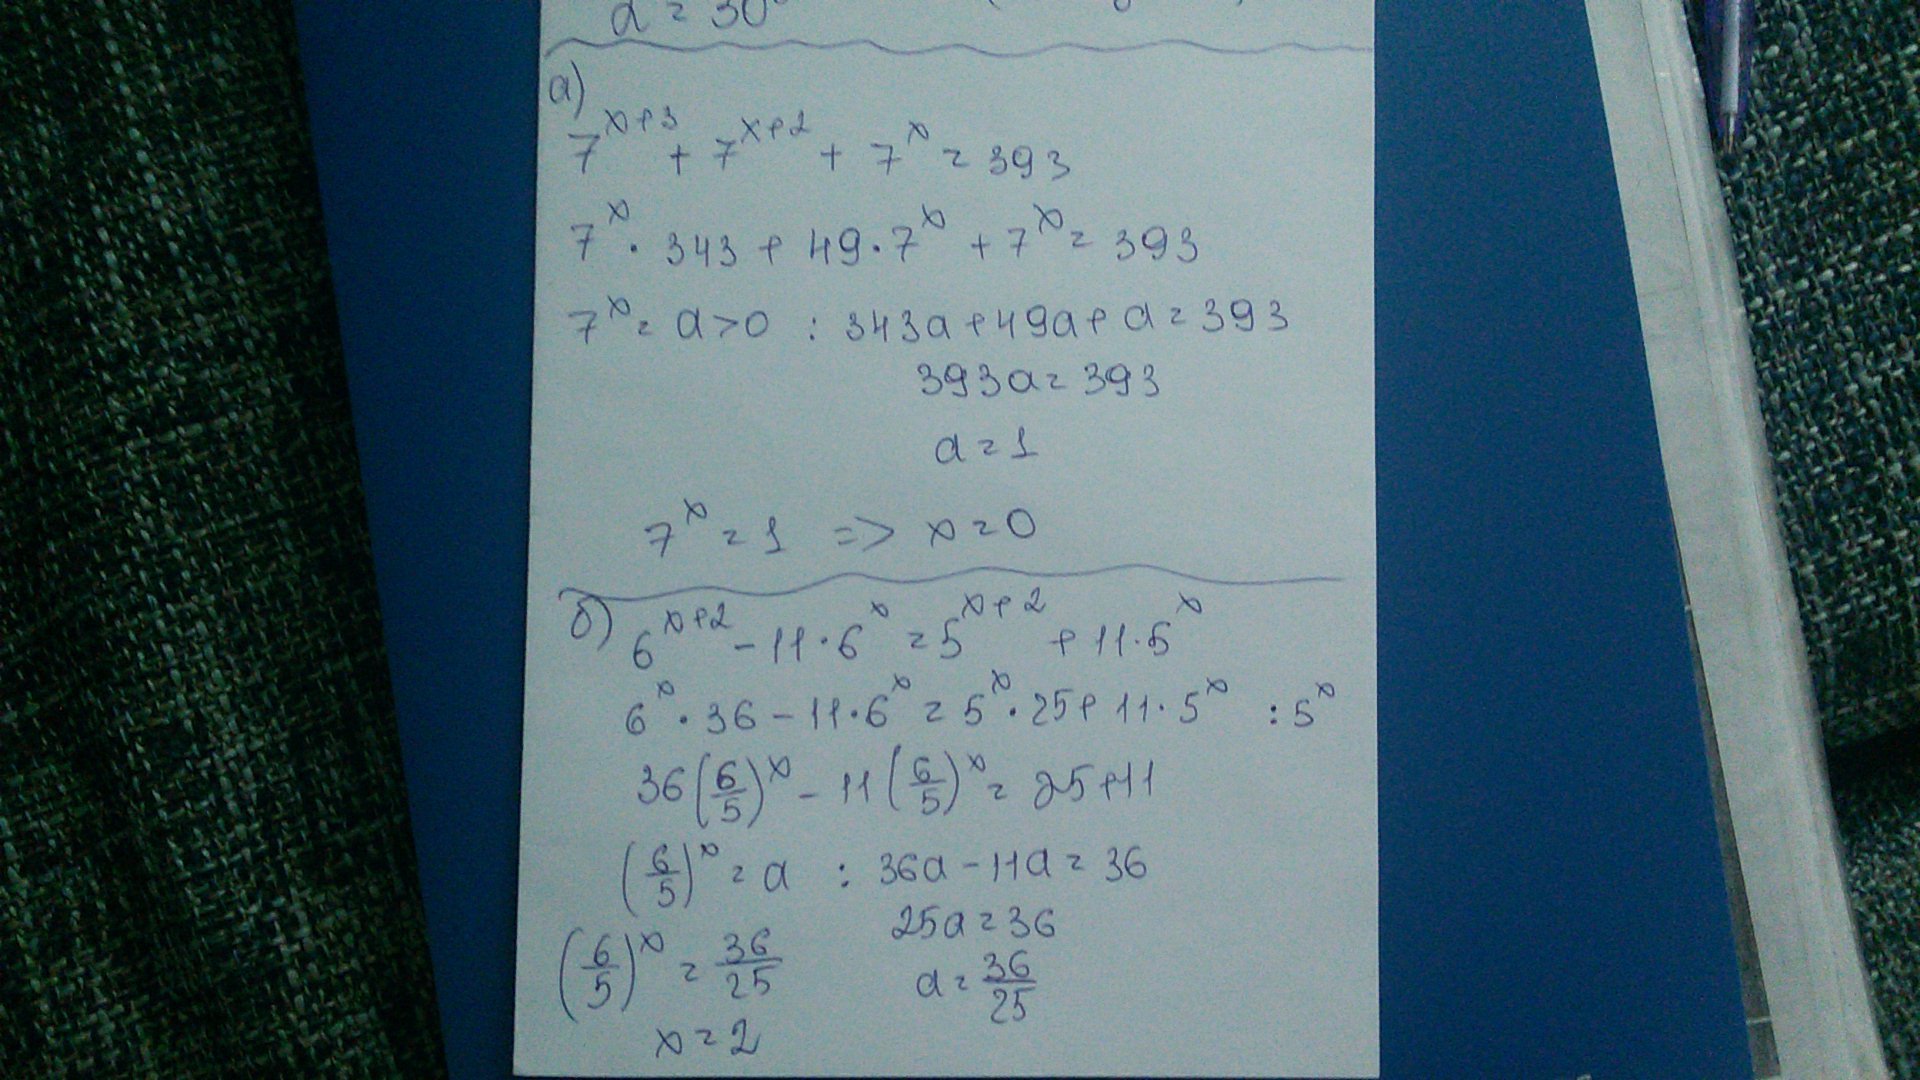 α = 30°
а)
7^{x+3} + 7^{x+2} + 7^x = 393
7^x · 343 + 49 · 7^x + 7^x = 393
7^x = a > 0 : 343a + 49a + a = 393
393a = 393
a = 1
7^x = 1 => x = 0
б) 6^{x+2} - 11 · 6^x = 5^{x+2} + 11 · 5^x
6^x · 36 - 11 · 6^x = 5^x · 25 + 11 · 5^x : 5^x
36(6/5)^x - 11(6/5)^x = 25 + 11
(6/5)^x = a : 36a - 11a = 36
25a = 36
(6/5)^x = 36/25 a = 36/25
x = 2